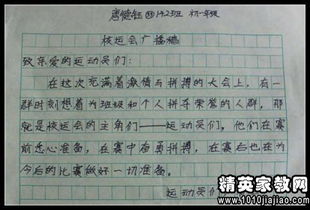 唐健钰 1423班 初一年级
校运会广播稿
致亲爱的运动员们：
在这次充满着激情与拼搏的大会上，有一
群时刻想着为班级和个人拼夺荣誉的人群，那
就是校运会的主角们——运动员们。他们在赛
前忠心准备，在赛中奋勇拼搏，在赛后也在为
今后的比赛做好一切准备。
运动员们
精英家教网
www.1010jiajiao.com